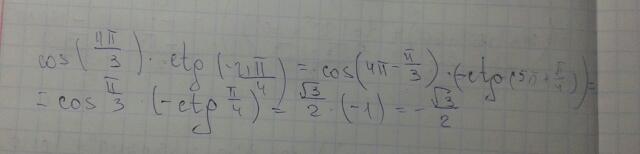 cos(4π/3) · ctg(-21π/4) = cos(4π - π/3) · (-ctg(5π + π/4)) =
= cos π/3 · (-ctg π/4) = √3/2 · (-1) = -√3/2